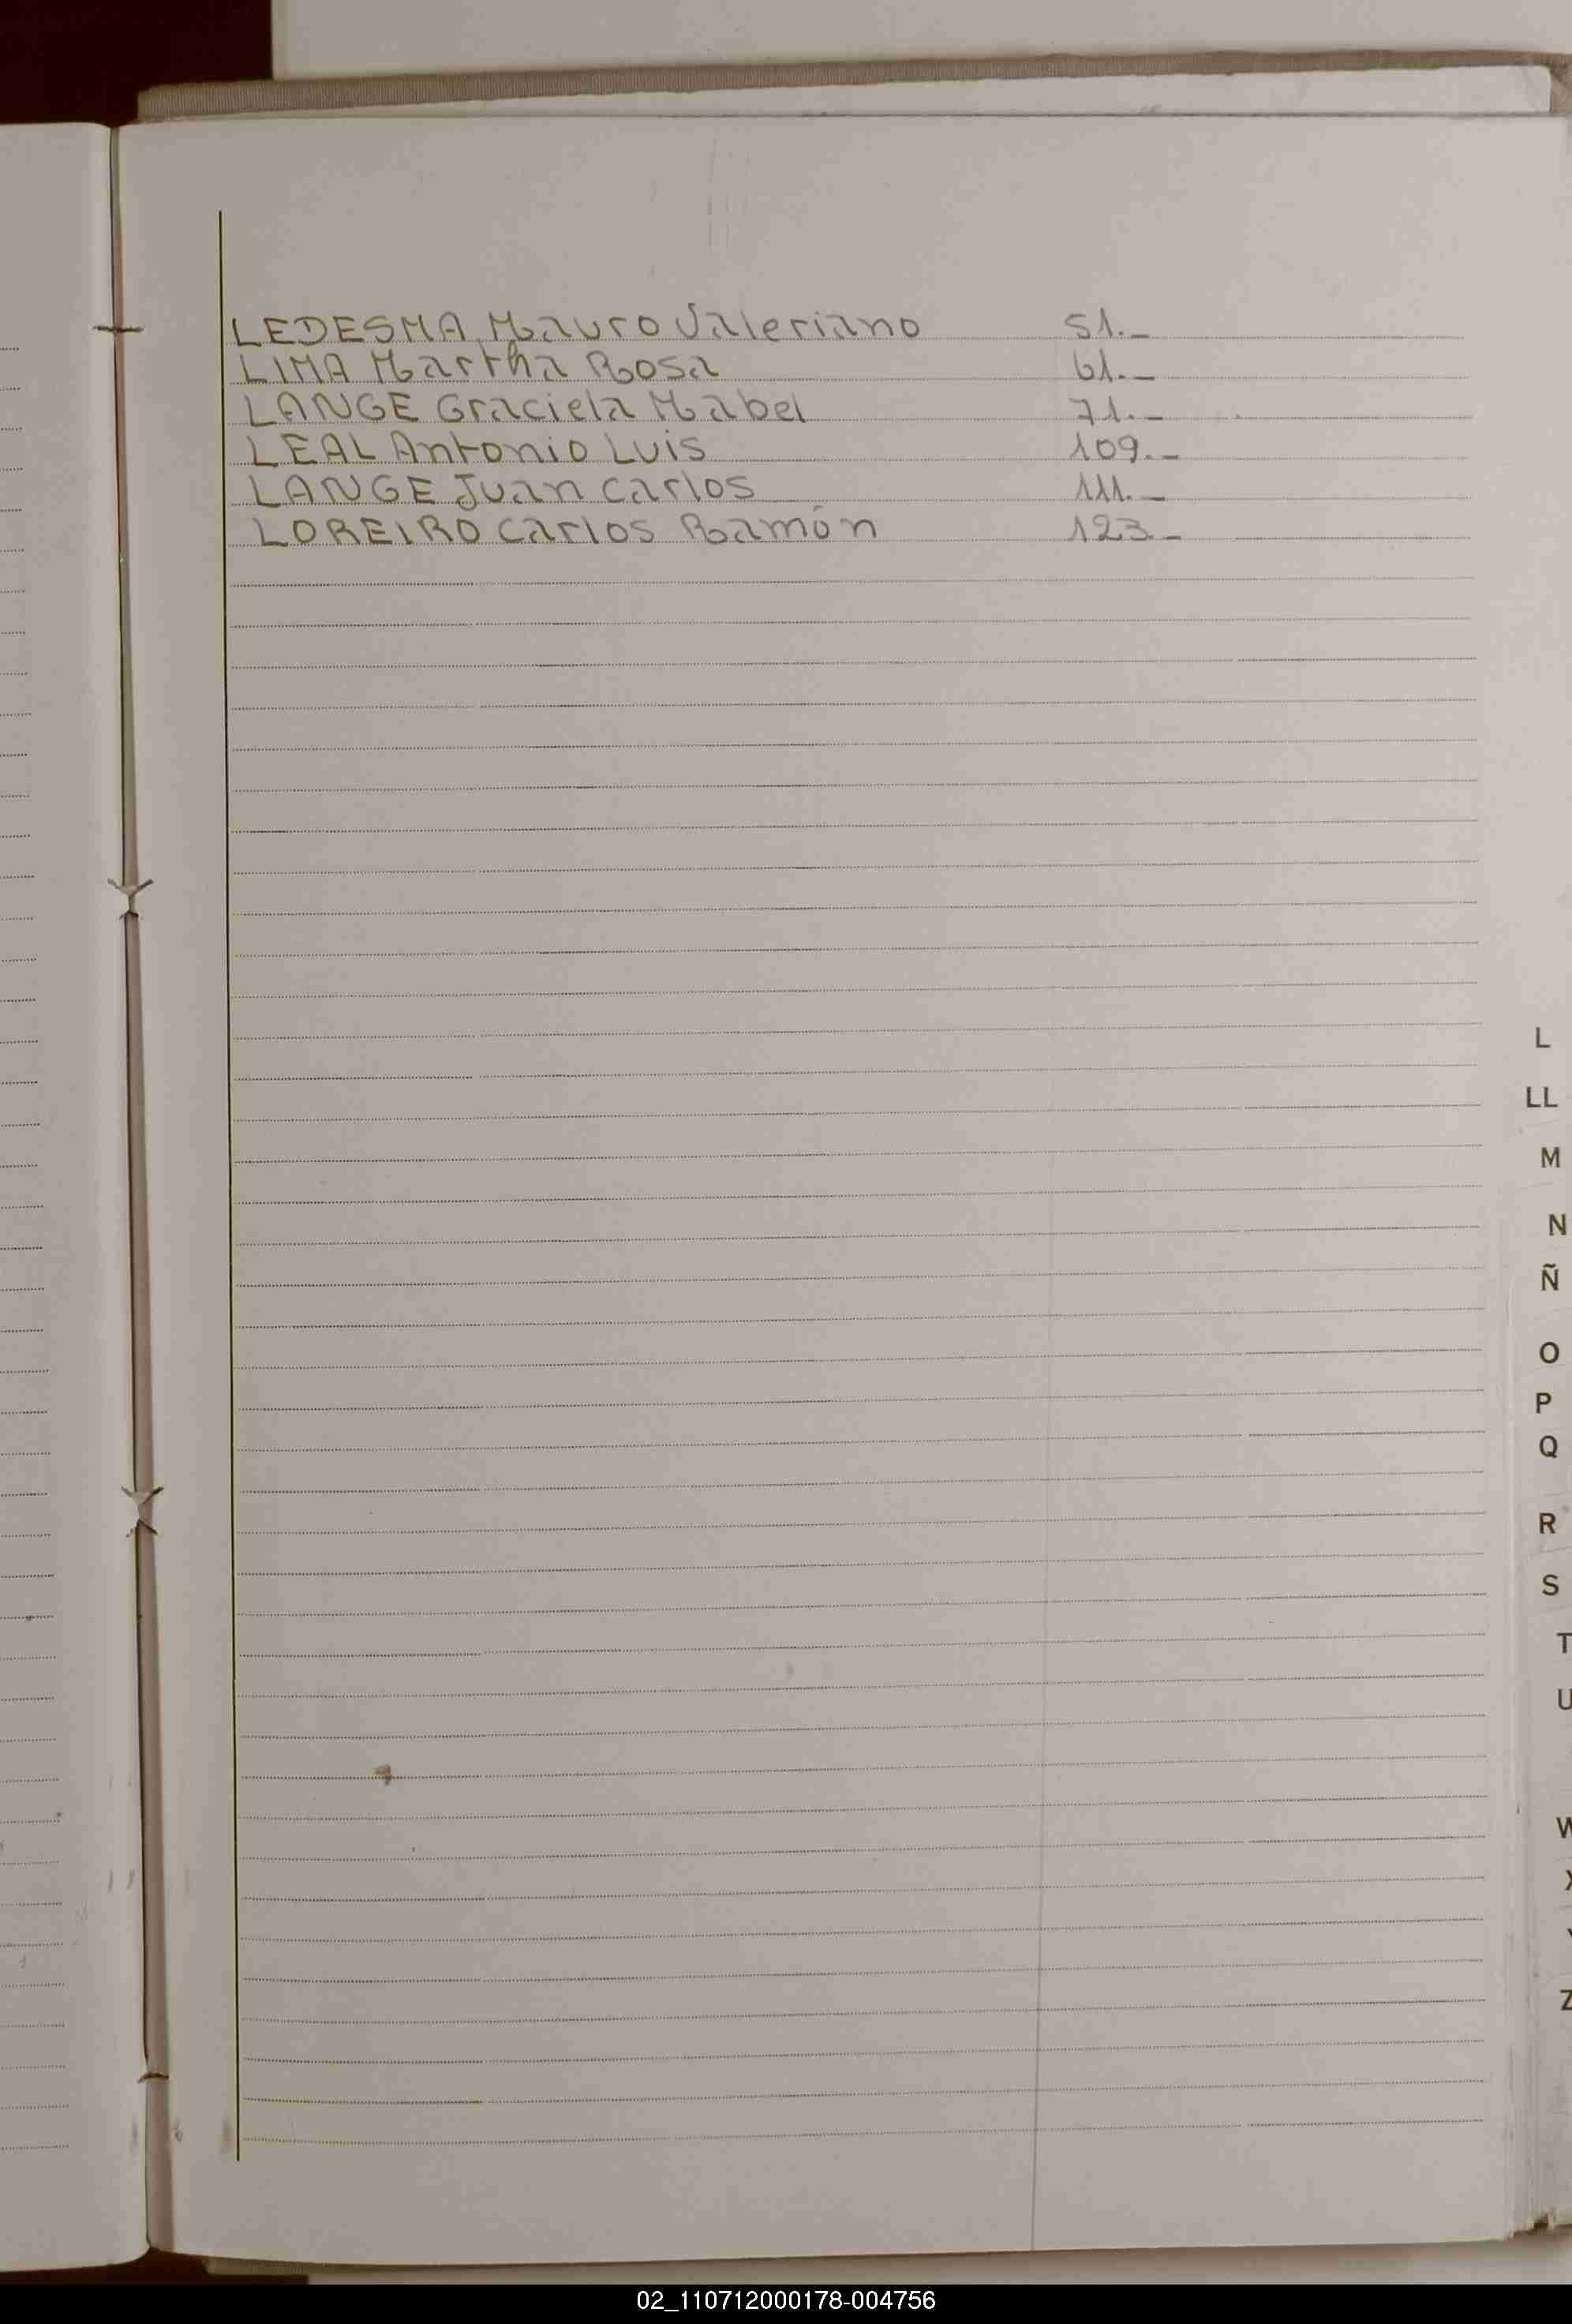 LEDESMA, Mauro Valeriano 51._
LIMA Martha Rosa 61._
LANGE Graciela Mabel 71._
LEAL Antonio Luis 109._
LANGE Juan Carlos 111._
LOREIRO Carlos Ramón 123_
L
LL
M
N
Ñ
O
P
Q
R
S
T
U
W
X
Y
Z
02_110712000178-004756